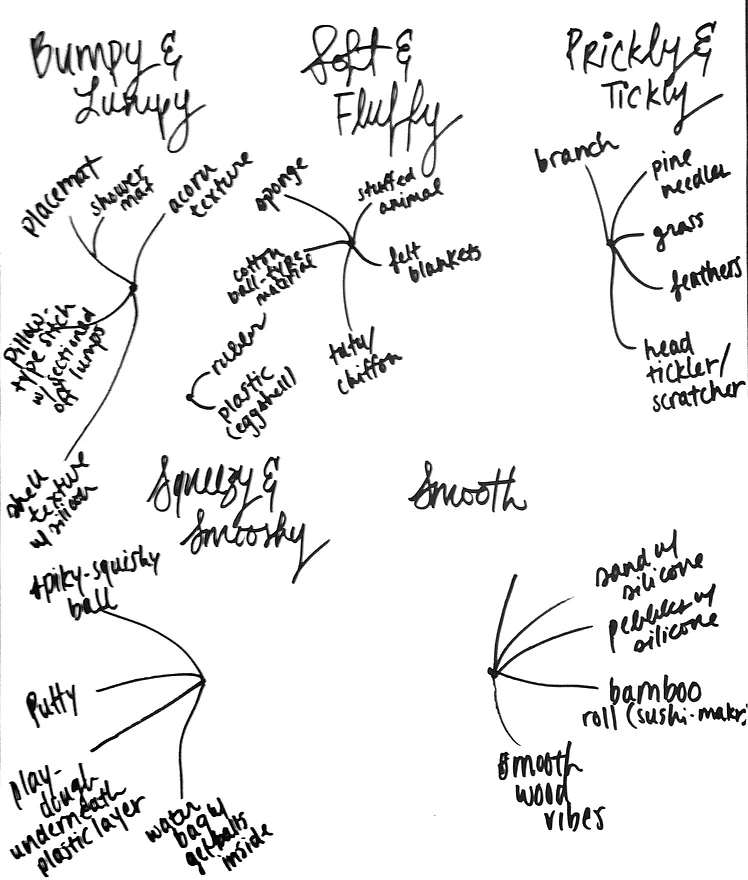 Bumpy &
Lumpy
placemat
shower
mat
acorn
texture
pillow-
type stitch
w/ sectioned
off lumps
shell
texture
w/ silicon
Soft &
Fluffy
sponge
stuffed
animal
cotton
ball-type
material
felt
blankets
tutu/
chiffon
rubber
plastic
(eggshell)
Prickly &
Tickly
branch
pine
needles
grass
feathers
head
tickler/
scratcher
Squeezy &
Smooshy
spiky-squishy
ball
putty
play-
dough
underneath
plastic layer
water
bag w/
gel balls
inside
Smooth
sand w/
silicone
pebbles w/
silicone
bamboo
roll (sushi-makr
smooth
wood
vibes